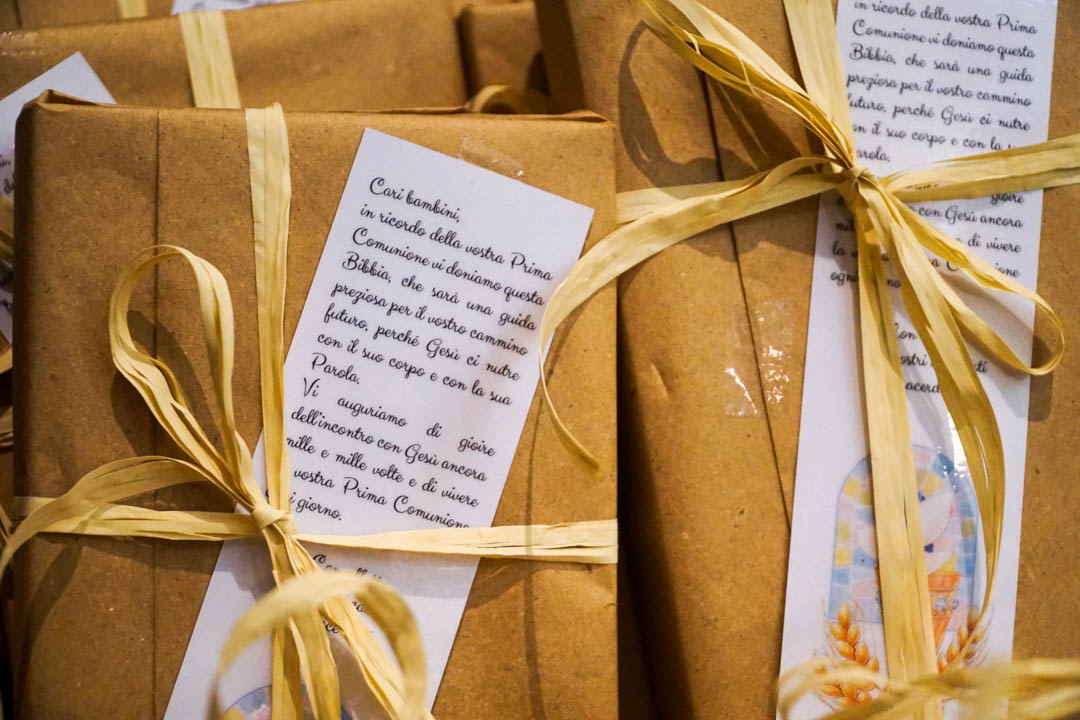 Cari bambini,
in ricordo della vostra Prima
Comunione vi doniamo questa
Bibbia, che sarà una guida
preziosa per il vostro cammino
futuro, perché Gesù ci nutre
con il suo corpo e con la sua
Parola.
Vi auguriamo di gioire
dell'incontro con Gesù ancora
mille e mille volte e di vivere
vostra Prima Comunione
giorno.
in ricordo della vostra Prima
Comunione vi doniamo questa
Bibbia, che sarà una guida
preziosa per il vostro cammino
futuro, perché Gesù ci nutre
con il suo corpo e con la
Parola.
con Gesù ancora
di vivere
Comunione